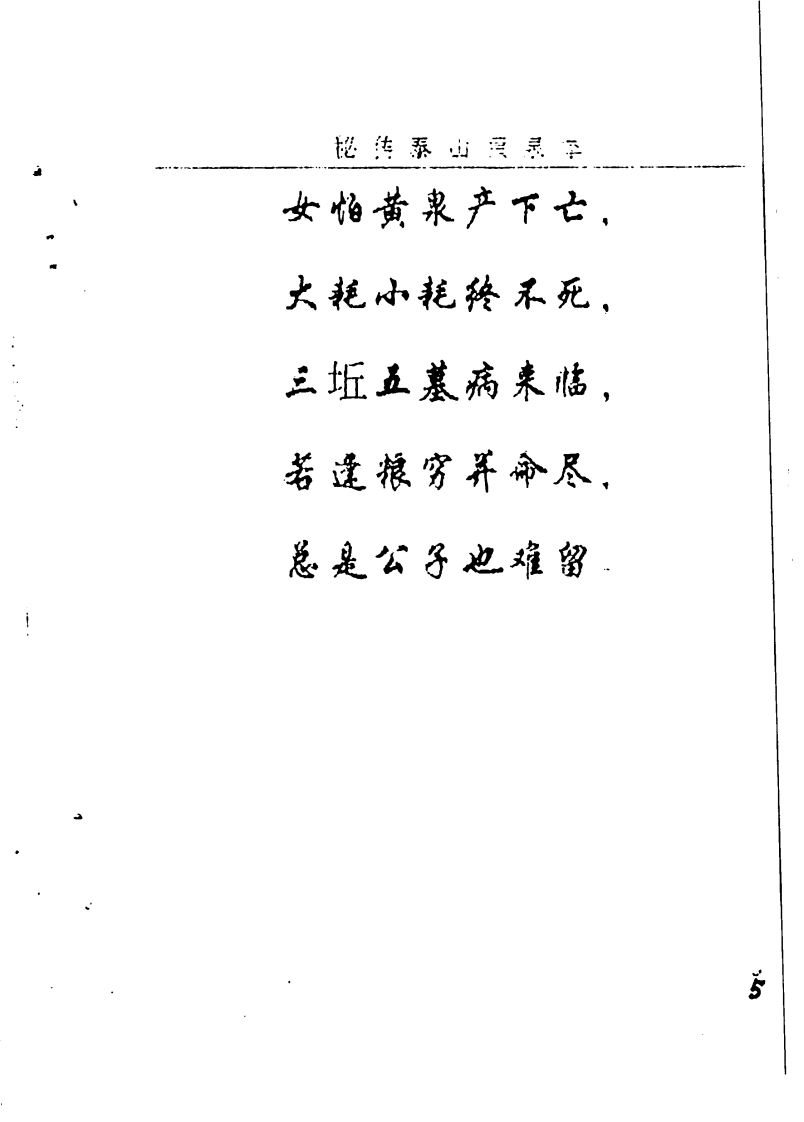 秘传泰山
女怕黄泉产下亡，
大耗小耗终不死，
三坵五墓病来临，
若逢粮穷并命尽，
总是公子也难留
5